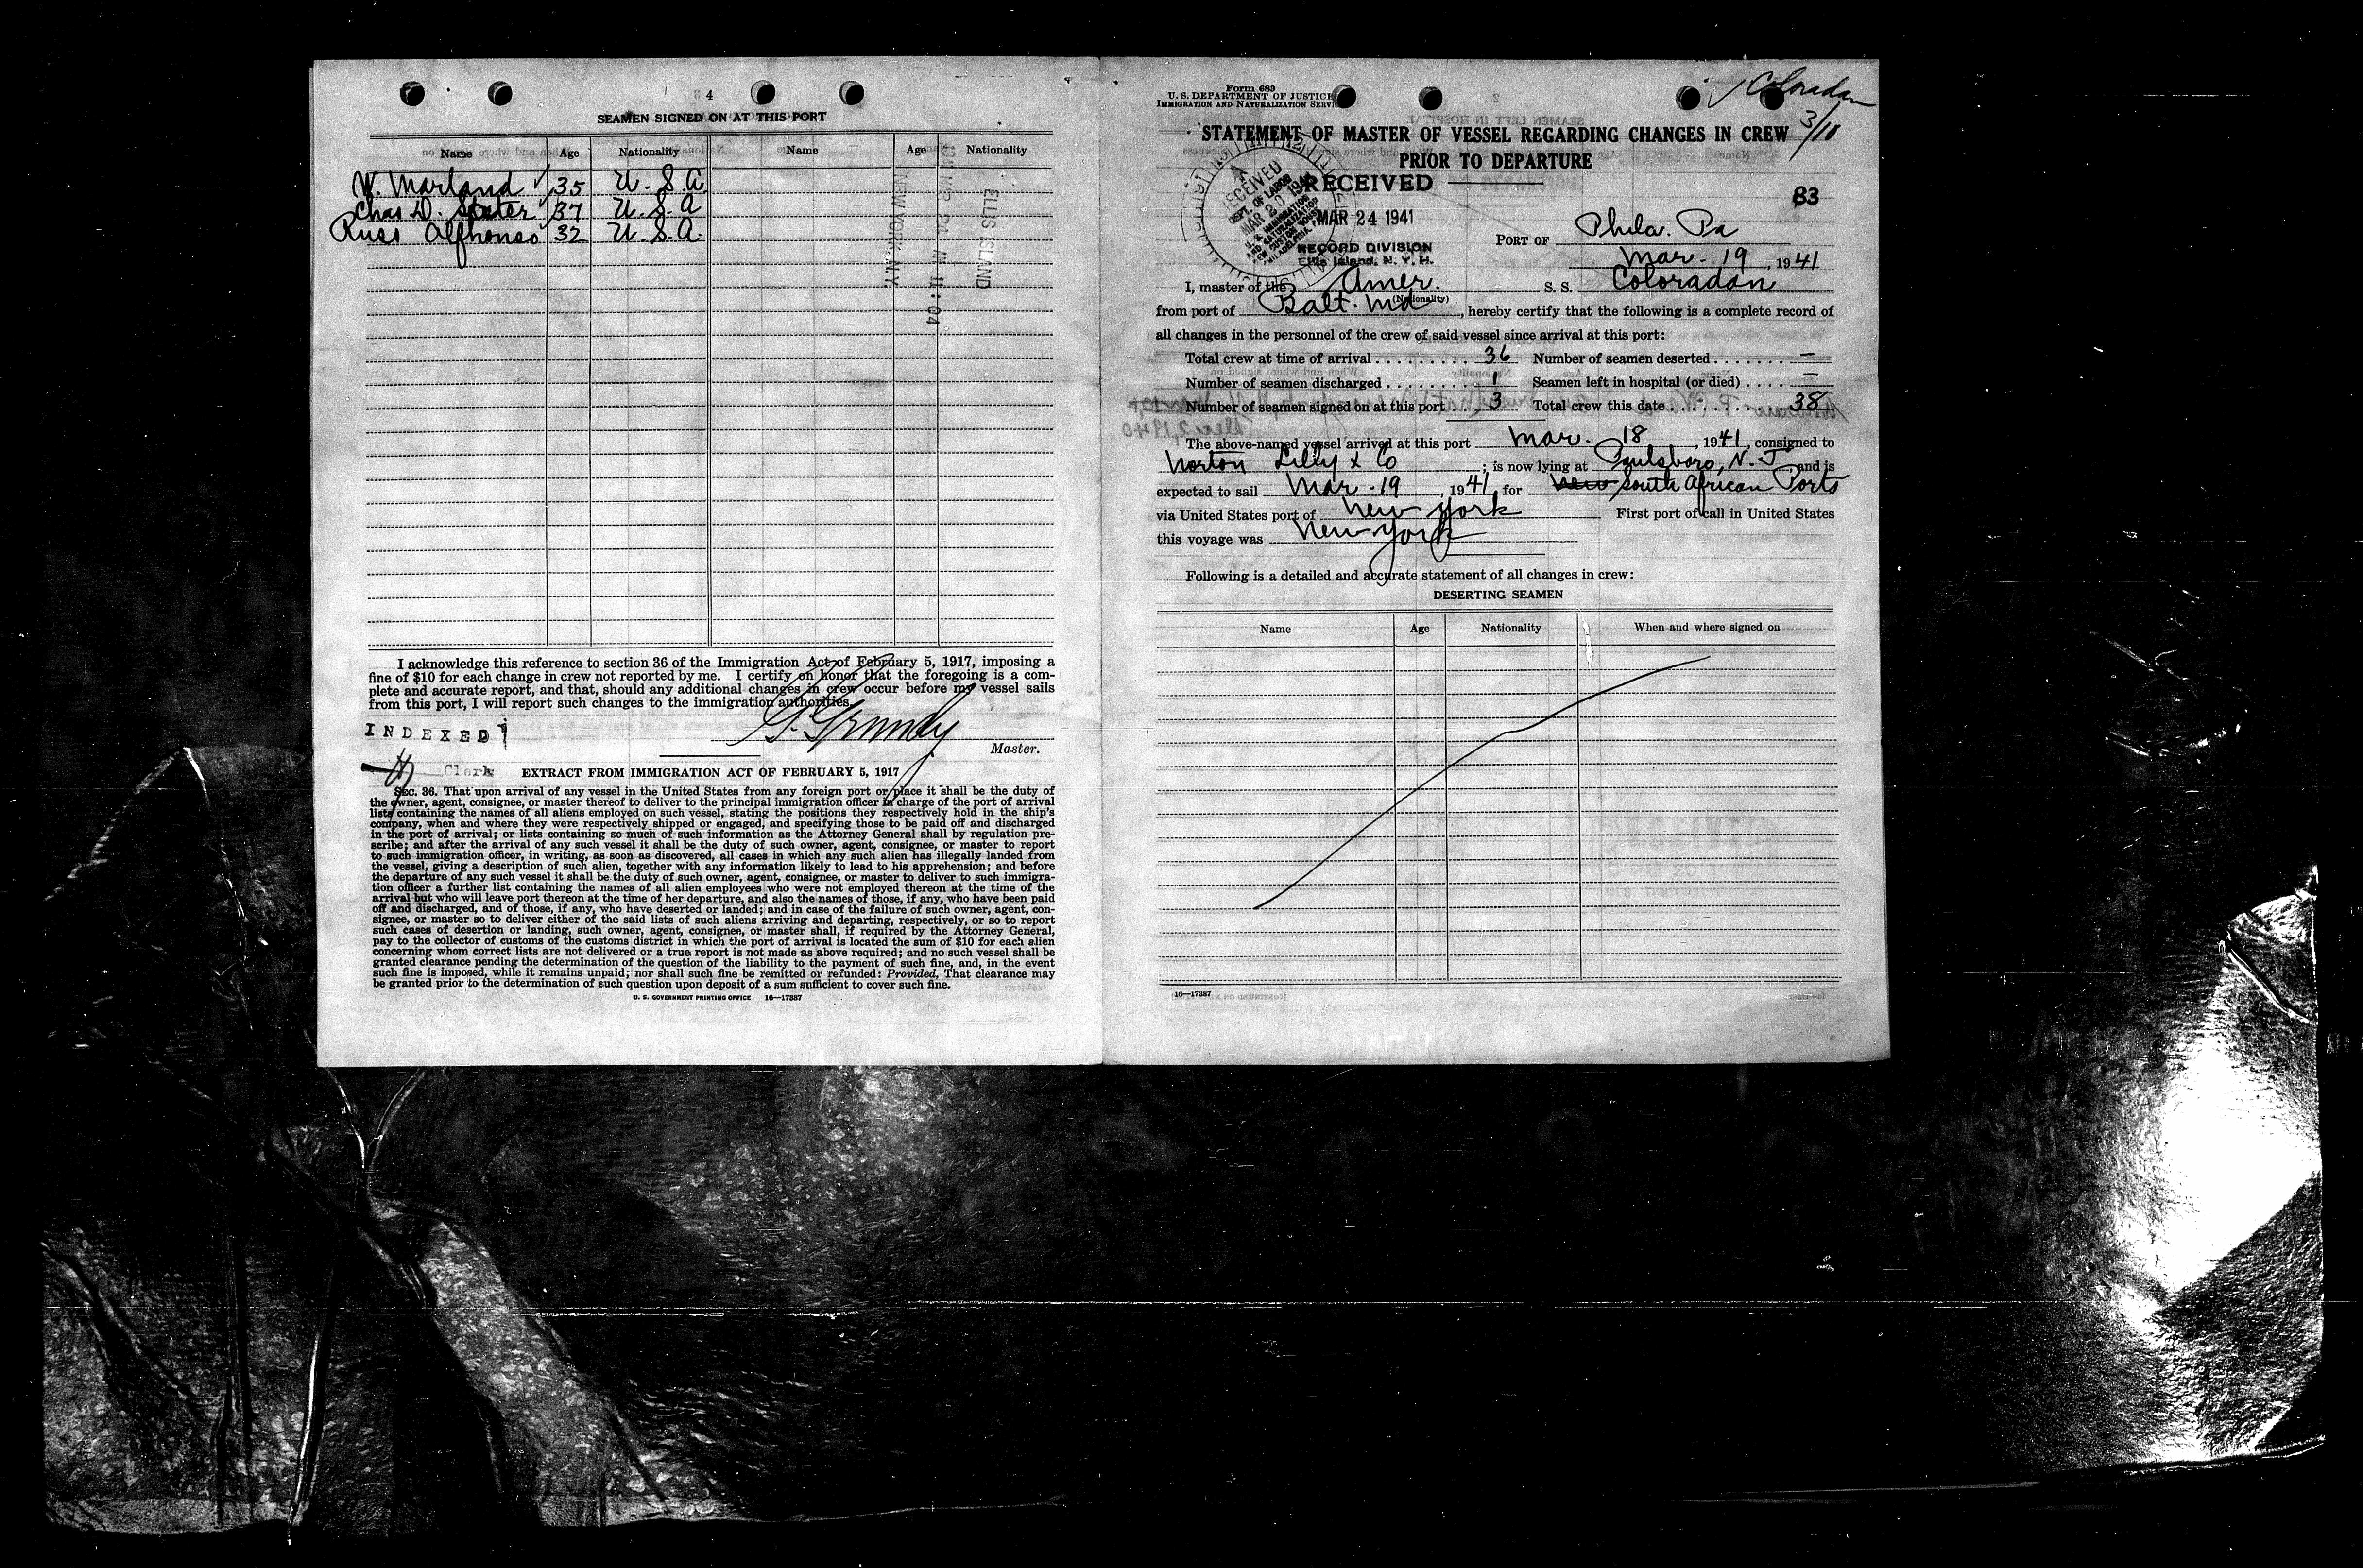 4
SEAMEN SIGNED ON AT THIS PORT
Name Age Nationality Name Age Nationality
W. Marland 35 U. S. A.
Chas D. Slater 37 U. S. A
Russ Alfhonso 32 U. S. A.
ELLIS ISLAND
NEW YORK, N.Y.
I acknowledge this reference to section 36 of the Immigration Act of February 5, 1917, imposing a
fine of $10 for each change in crew not reported by me. I certify on honor that the foregoing is a com-
plete and accurate report, and that, should any additional changes in crew occur before my vessel sails
from this port, I will report such changes to the immigration authorities.
INDEXED
Master.
Clerk
EXTRACT FROM IMMIGRATION ACT OF FEBRUARY 5, 1917
SEC. 36. That upon arrival of any vessel in the United States from any foreign port or place it shall be the duty of
the owner, agent, consignee, or master thereof to deliver to the principal immigration officer in charge of the port of arrival
lists containing the names of all aliens employed on such vessel, stating the positions they respectively hold in the ship's
company, when and where they were respectively shipped or engaged, and specifying those to be paid off and discharged
in the port of arrival; or lists containing so much of such information as the Attorney General shall by regulation pre-
scribe; and after the arrival of any such vessel it shall be the duty of such owner, agent, consignee, or master to report
to such immigration officer, in writing, as soon as discovered, all cases in which any such alien has illegally landed from
the vessel, giving a description of such alien, together with any information likely to lead to his apprehension; and before
the departure of any such vessel it shall be the duty of such owner, agent, consignee, or master to deliver to such immigra-
tion officer a further list containing the names of all alien employees who were not employed thereon at the time of the
arrival but who will leave port thereon at the time of her departure, and also the names of those, if any, who have been paid
off and discharged, and of those, if any, who have deserted or landed; and in case of the failure of such owner, agent, con-
signee, or master so to deliver either of the said lists of such aliens arriving and departing, respectively, or so to report
such cases of desertion or landing, such owner, agent, consignee, or master shall, if required by the Attorney General,
pay to the collector of customs of the customs district in which the port of arrival is located the sum of $10 for each alien
concerning whom correct lists are not delivered or a true report is not made as above required; and no such vessel shall be
granted clearance pending the determination of the question of the liability to the payment of such fine, and, in the event
such fine is imposed, while it remains unpaid; nor shall such fine be remitted or refunded: Provided, That clearance may
be granted prior to the determination of such question upon deposit of a sum sufficient to cover such fine.
U. S. GOVERNMENT PRINTING OFFICE 16—17387
Form 689
U. S. DEPARTMENT OF JUSTICE
IMMIGRATION AND NATURALIZATION SERVI
Coloradan
3/18
STATEMENT OF MASTER OF VESSEL REGARDING CHANGES IN CREW
PRIOR TO DEPARTURE
RECEIVED
MAR 24 1941
RECORD DIVISION
Ellis Island, N. Y. H.
RECEIVED
DEPT. OF LABOR
MAR 20 1941
83
PORT OF Phila. Pa
Mar. 19, 1941
I, master of the Amer. S. S. Coloradan
(Nationality)
from port of Balt. Md, hereby certify that the following is a complete record of
all changes in the personnel of the crew of said vessel since arrival at this port:
Total crew at time of arrival 36 Number of seamen deserted —
Number of seamen discharged 1 Seamen left in hospital (or died) —
Number of seamen signed on at this port 3 Total crew this date 38
The above-named vessel arrived at this port Mar. 18, 1941, consigned to
Norton Lilly & Co; is now lying at Paulsboro, N. J and is
expected to sail Mar. 19, 1941, for New South African Ports
via United States port of New York First port of call in United States
this voyage was New York
Following is a detailed and accurate statement of all changes in crew:
DESERTING SEAMEN
Name Age Nationality When and where signed on
16—17387